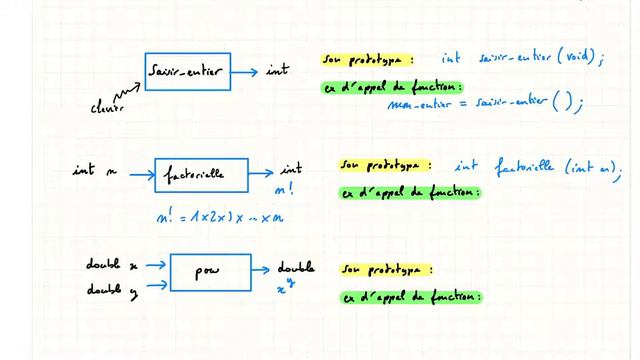 saisir_entier int
clavier
son prototype : int saisir_entier (void);
ex d'appel de fonction :
mon_entier = saisir_entier ();
int n factorielle int
n!
n! = 1x2x3x...xn
son prototype : int factorielle (int n);
ex d'appel de fonction :
double x pow double
double y x^y
son prototype :
ex d'appel de fonction :